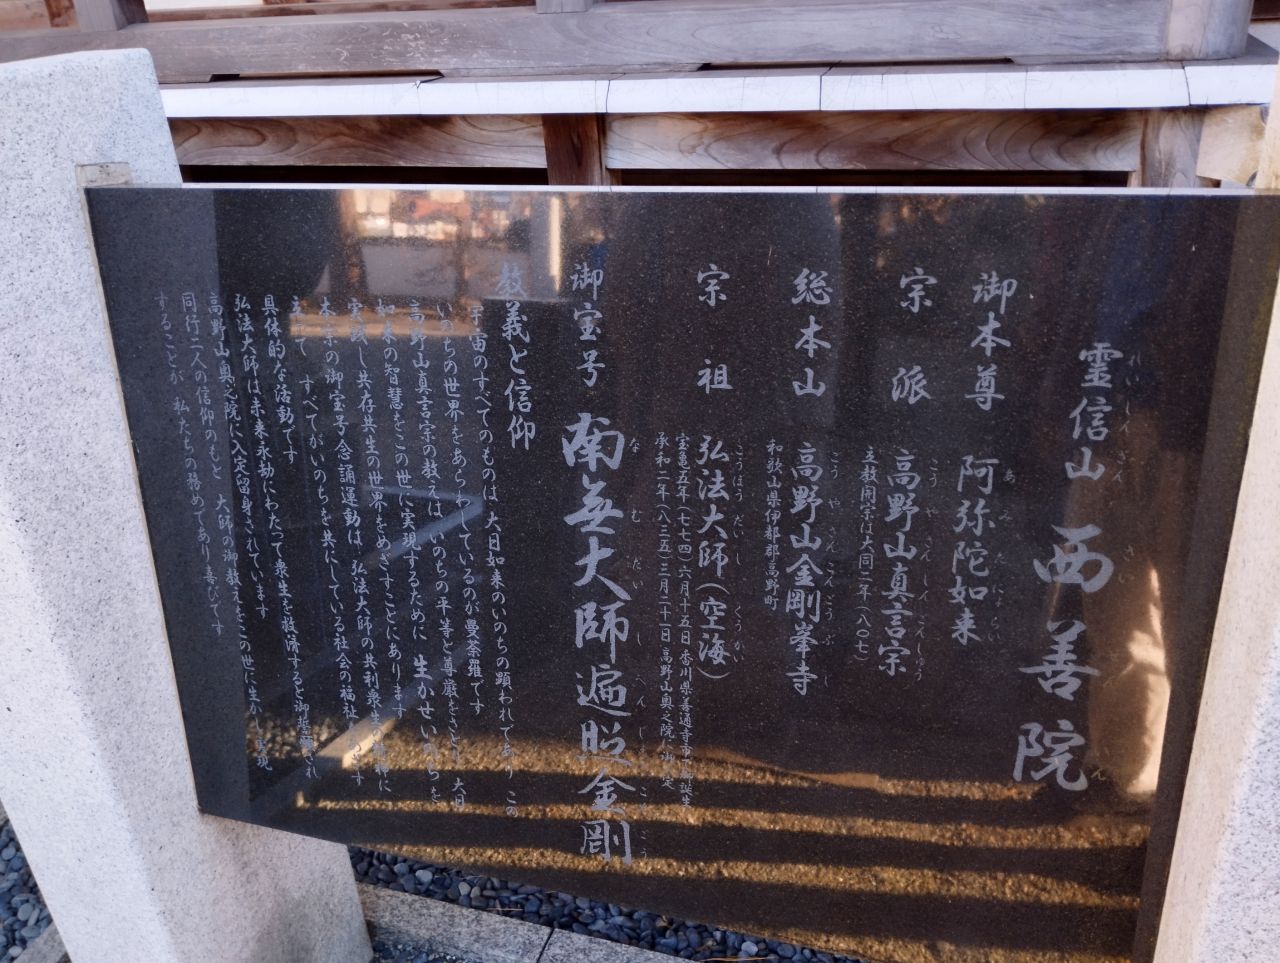 霊信山 西善院
れいしんざん さいぜんいん
御本尊 阿弥陀如来
あみだにょらい
宗派 高野山真言宗
こうやさんしんごんしゅう
立教開宗は大同二年(八〇七)
総本山 高野山金剛峯寺
こうやさんこんごうぶじ
和歌山県伊都郡高野町
宗祖 弘法大師(空海)
こうぼうだいし くうかい
宝亀五年(七七四)六月十五日 香川県善通寺市 誕生
承和二年(八三五)三月二十一日 高野山奥之院に御入定
御宝号 南無大師遍照金剛
なむだいしへんじょうこんごう
教義と信仰
宇宙のすべてのものは 大日如来のいのちの顕われであり この
いのちの世界をあらわしているのが曼荼羅です
高野山真言宗の教えは いのちの平等と尊厳をさとり 大日
如来の智慧をこの世に実現するために 生かせいのちを
実践し共存共生の世界をめざすことにあります
本宗の御宝号念誦運動は 弘法大師の共利衆生の精神に
立って すべてがいのちを共にしている社会の福祉
具体的な活動です
弘法大師は未来永劫にわたって衆生を救済すると御誓願され
高野山奥之院に入定留身されています
同行二人の信仰のもと 大師の御教えをこの世に生かし実現
することが 私たちの務めであり喜びです